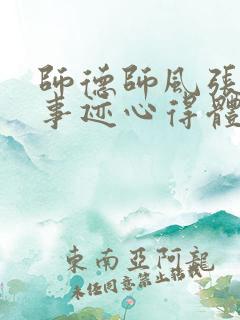 師德師風張
事迹心得體
東南亞阿龍
未任同意禁止转载